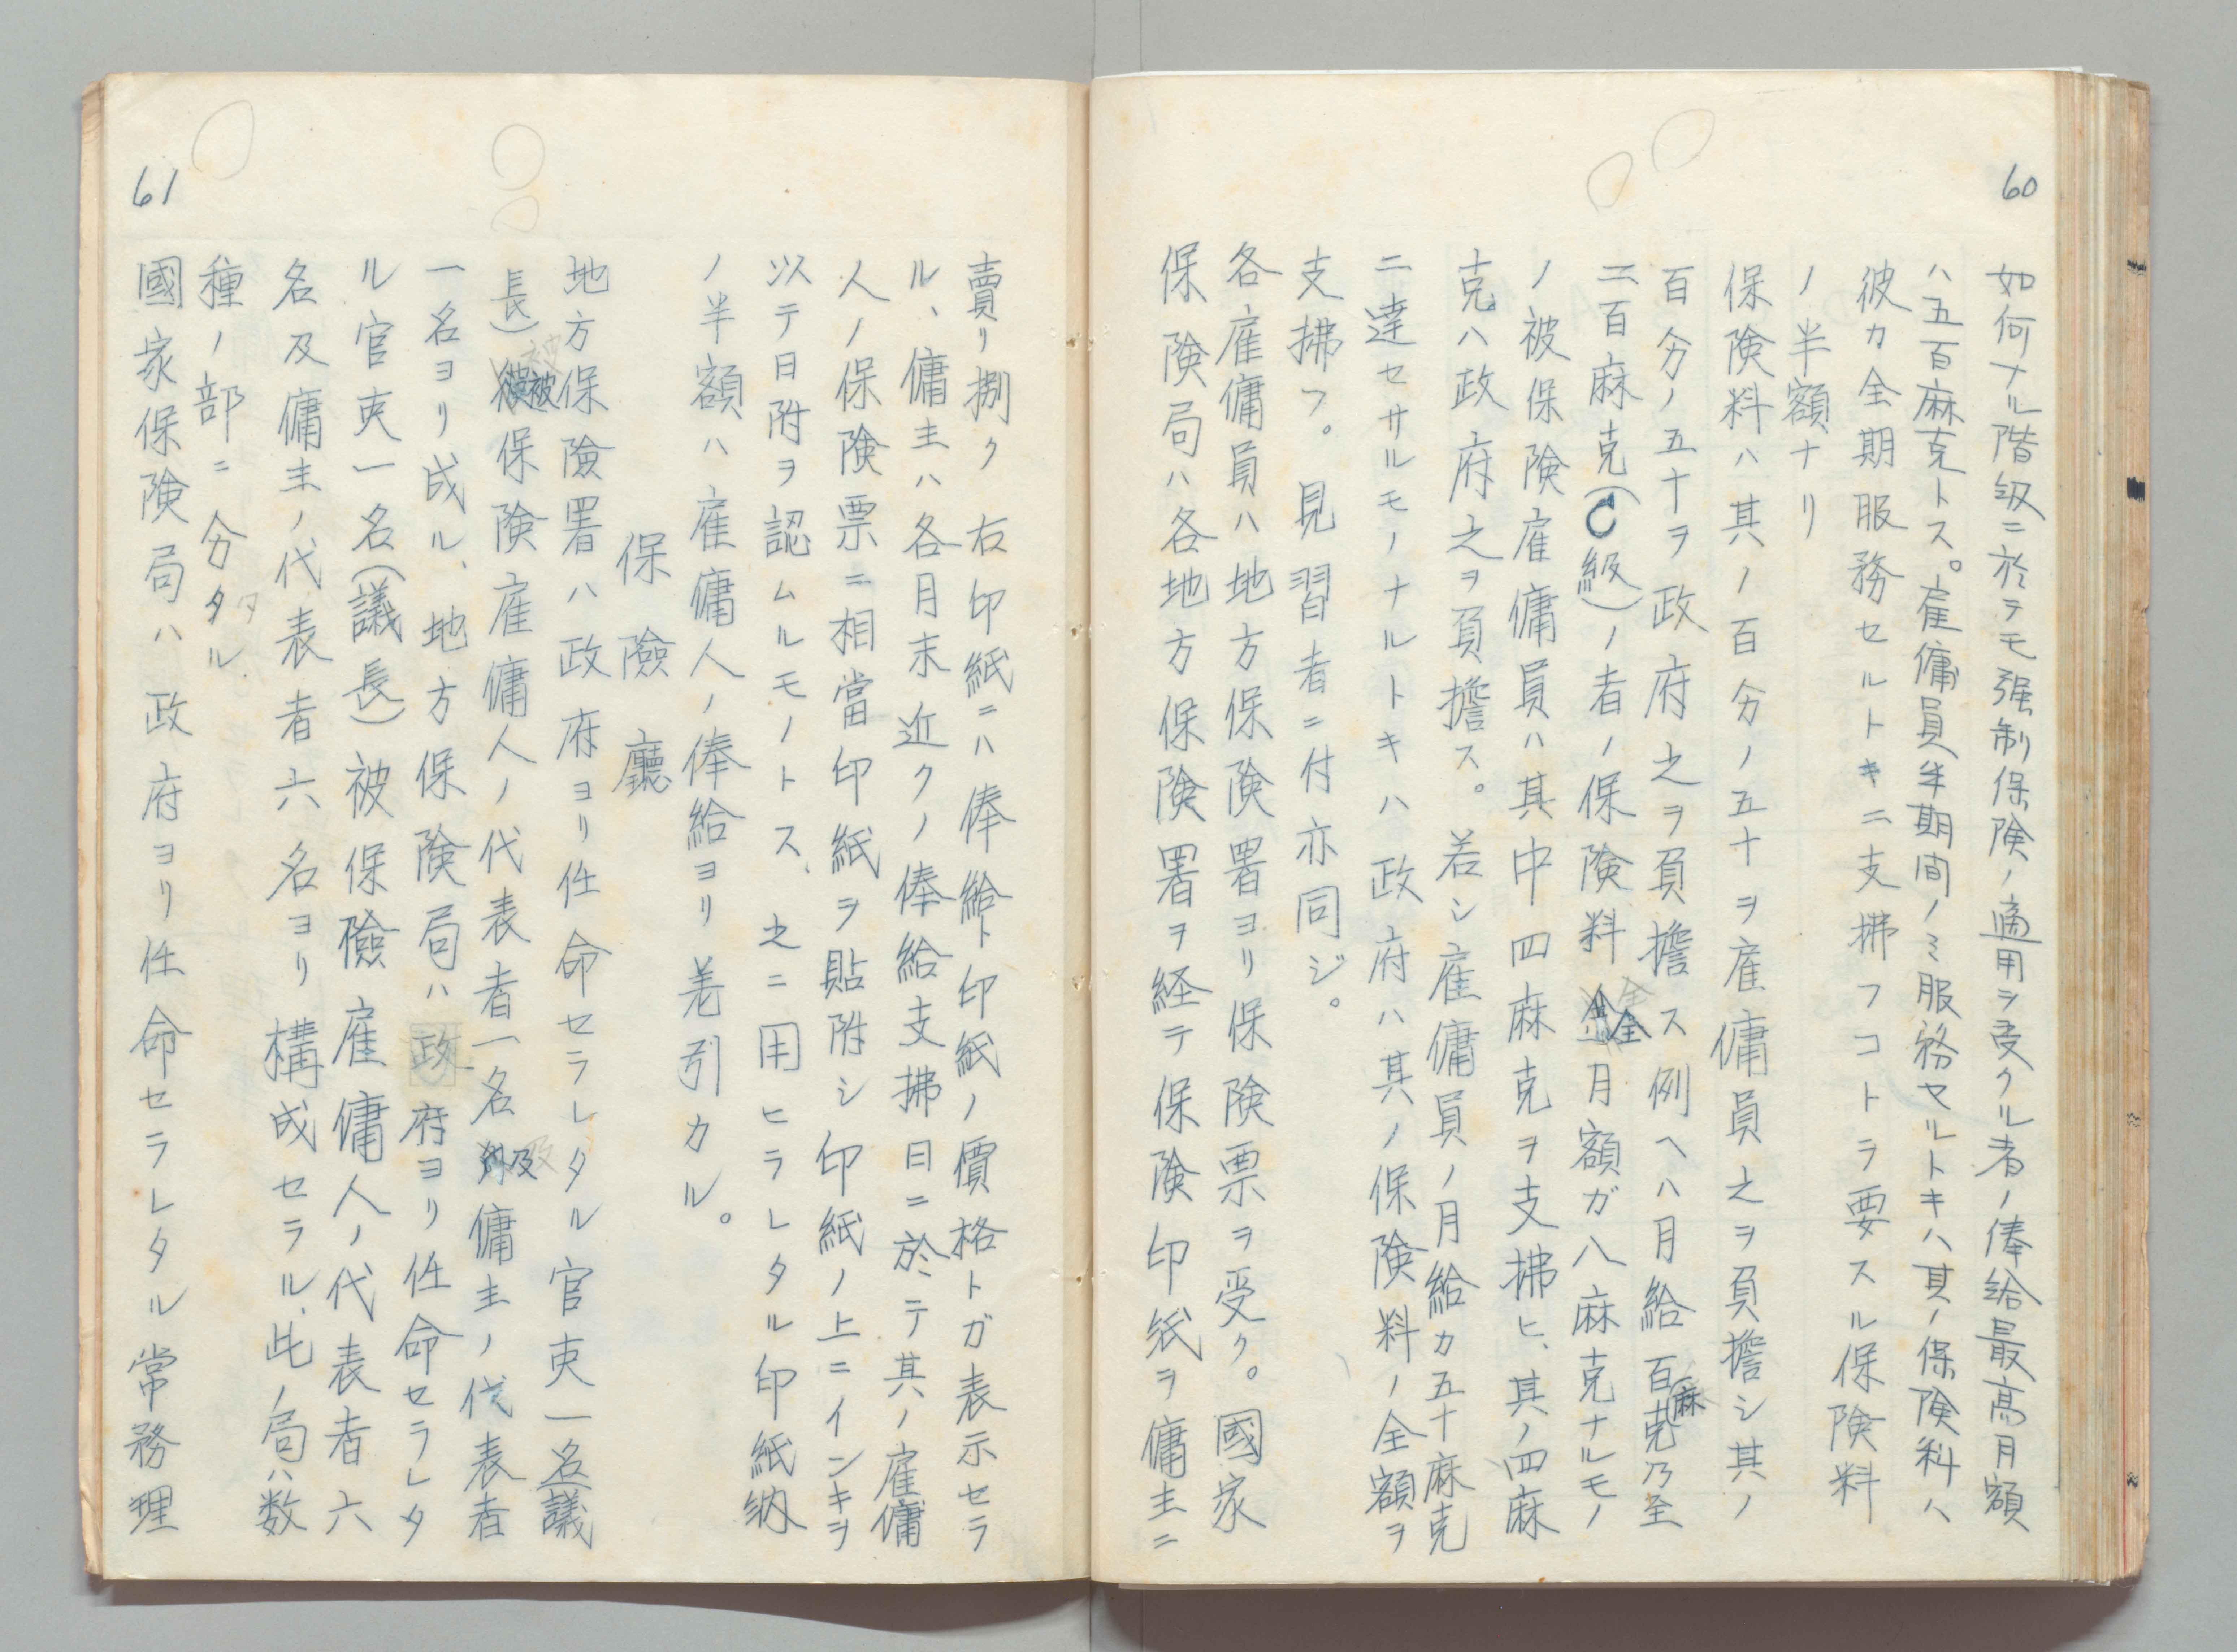 60
如何ナル階級ニ於テモ强制保険ノ適用ヲ受クル者ノ俸給最高月額
ハ五百麻克トス。雇傭員半期間ノミ服務セルトキハ其ノ保険料ハ
彼カ全期服務セルトキニ支拂フコトヲ要スル保険料
ノ半額ナリ
保険料ハ其ノ百分ノ五十ヲ雇傭員之ヲ負擔シ其ノ
百分ノ五十ヲ政府之ヲ負擔ス例ヘハ月給百麻克乃至
二百麻克(C級)ノ者ノ保険料全月額ガ八麻克ナルモノ
ノ被保険雇傭員ハ其中四麻克ヲ支拂ヒ、其ノ四麻
克ハ政府之ヲ負擔ス。若シ雇傭員ノ月給カ五十麻克
ニ達セサルモノナルトキハ政府ハ其ノ保険料ノ全額ヲ
支拂フ。見習者ニ付亦同ジ。
各雇傭員ハ地方保険署ヨリ保険票ヲ受ク。國家
保険局ハ各地方保険署ヲ経テ保険印紙ヲ傭主ニ
賣リ捌ク右印紙ニハ俸給ト印紙ノ價格トガ表示セラ
ル、傭主ハ各月末近クノ俸給支拂日ニ於テ其ノ雇傭
人ノ保険票ニ相當印紙ヲ貼附シ印紙ノ上ニインキヲ
以テ日附ヲ認ムルモノトス、之ニ用ヒラレタル印紙納
ノ半額ハ雇傭人ノ俸給ヨリ差引カル。
保險廳
地方保險署ハ政府ヨリ任命セラレタル官吏一名議
長)被保険雇傭人ノ代表者一名及傭主ノ代表者
一名ヨリ成ル、地方保険局ハ政府ヨリ任命セラレタ
ル官吏一名(議長)被保險雇傭人ノ代表者六
名及傭主ノ代表者六名ヨリ構成セラル、此ノ局ハ数
種ノ部ニ分タル
國家保険局ハ政府ヨリ任命セラレタル常務理
61